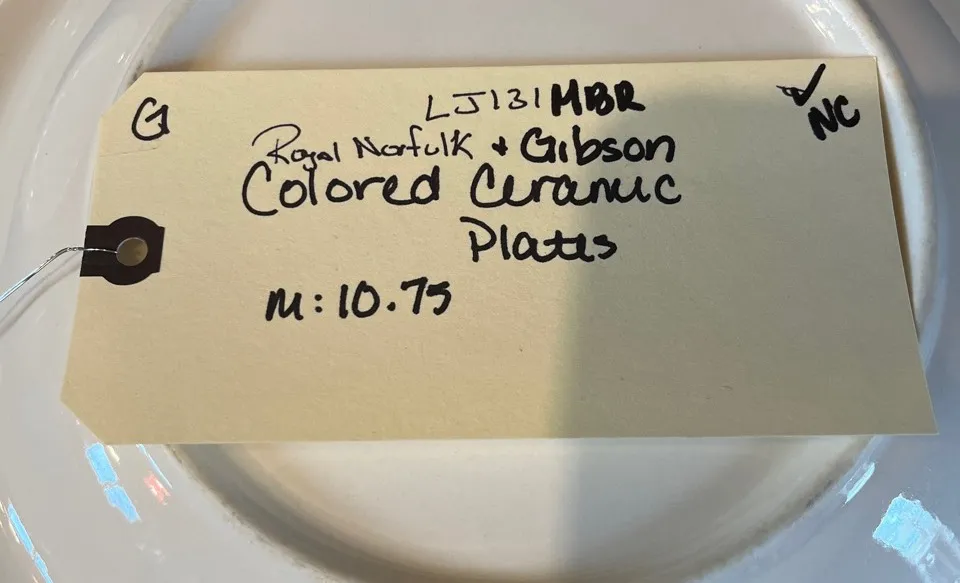 G
LJ131 MBR
✓ NC
Royal Norfulk + Gibson
Colored Ceramic
Plates
M: 10.75